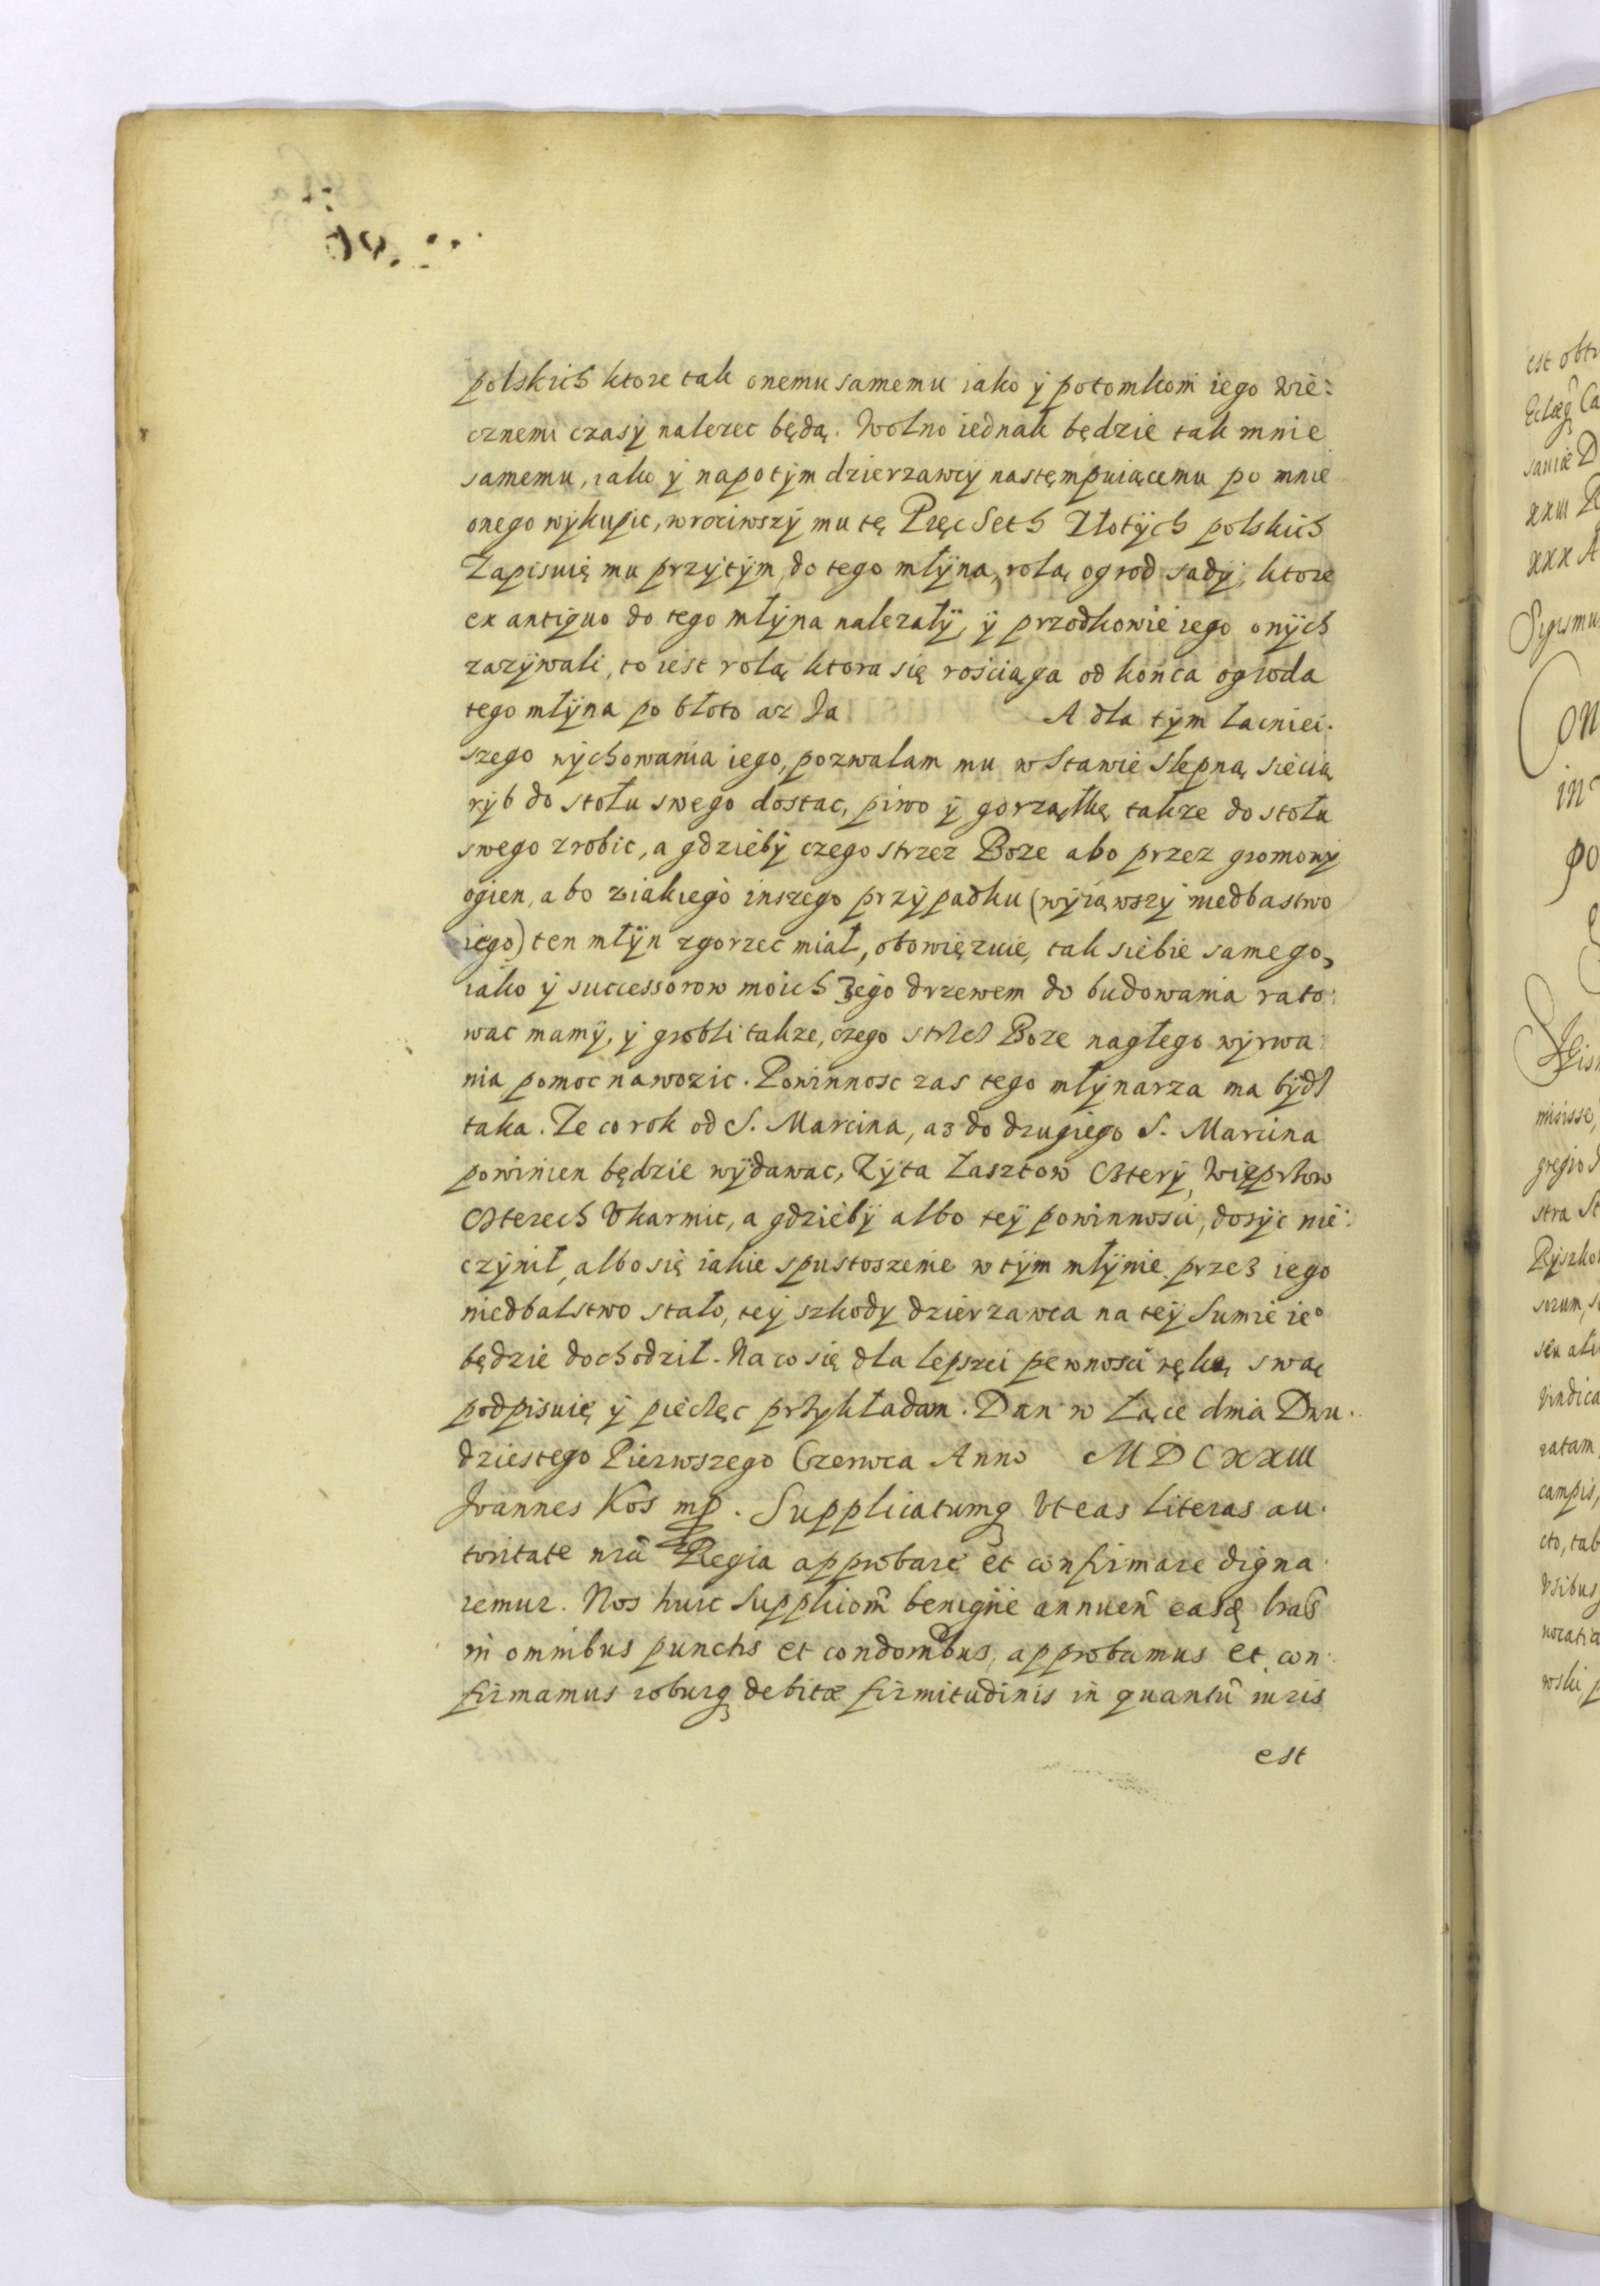 polskich ktore tak onemu samemu iako ÿ potomkom iego wie:
cznemi czasÿ nalezec będą. Wolno iednak będzie tak mnie
samemu, iako ÿ napotÿm dzierzawcÿ nastęmpuiącemu po mnie
onego wÿkupic, wrociwszÿ mu tę Pięc Seth Złotÿch polskich
Zapisuię mu przÿtÿm do tego młÿna, rolą ogrod sadÿ, ktore
ex antiquo do tego młÿna nalezałÿ, ÿ przodkowie iego onÿch
zazÿwali, to iest rolą ktora się rościąga od końca ogroda
tego młÿna po błoto az Ja A dla tÿm lacniei.
szego wÿchowania iego, pozwalam mu w Stawie Slepną siecią
rÿb do stołu swego dostac, piwo ÿ gorzałkę takze do stołu
swego zrobic, a gdziebÿ czego strzez Boze abo przez gromowÿ
ogien, abo ziakiego inszego przÿpadku (wÿiąwszÿ niedbastwo
iego) ten młÿn zgorzec miał, obowięzuię, tak siebie samego,
iako ÿ successorow moich Jego drzewem do budowania rato:
wac mamÿ, ÿ grobli takze, czego strzez Boze nagłego wÿrwa:
nia pomoc nawozic. Powinnosc zas tego młÿnarza ma bÿdz
taka. Ze co rok od S. Marcina, az do drugiego S. Marcina
powinien będzie wÿdawac, Zÿta Łasztow Czterÿ, Wieprzow
Czterech Ukarmic, a gdziebÿ albo teÿ powinnosci, dosÿc nie:
czÿnił, albo się iakie spustoszenie w tÿm młÿnie przez iego
niedbalstwo stało, teÿ szkody dzierzawca na teÿ Sumie ieº
będzie dochodził. Na co się dla lepszei pewnosci ręką swą
podpisuię ÿ pieczęc przykładam. Dan w Łące dnia Dwu.
dziestego Pierwszego Czerwca Anno MDCXXIII
Joannes Kos mp. Supplicatumq Vt eas literas au.
toritate nrã Regia approbare et confirmare digna.
remur. Nos huic Supplicoñi benigne annueñ easq lras
in omnibus punctis et condonibus, approbamus et con:
firmamus roburq debitæ firmitudinis in quantũ iuris
est